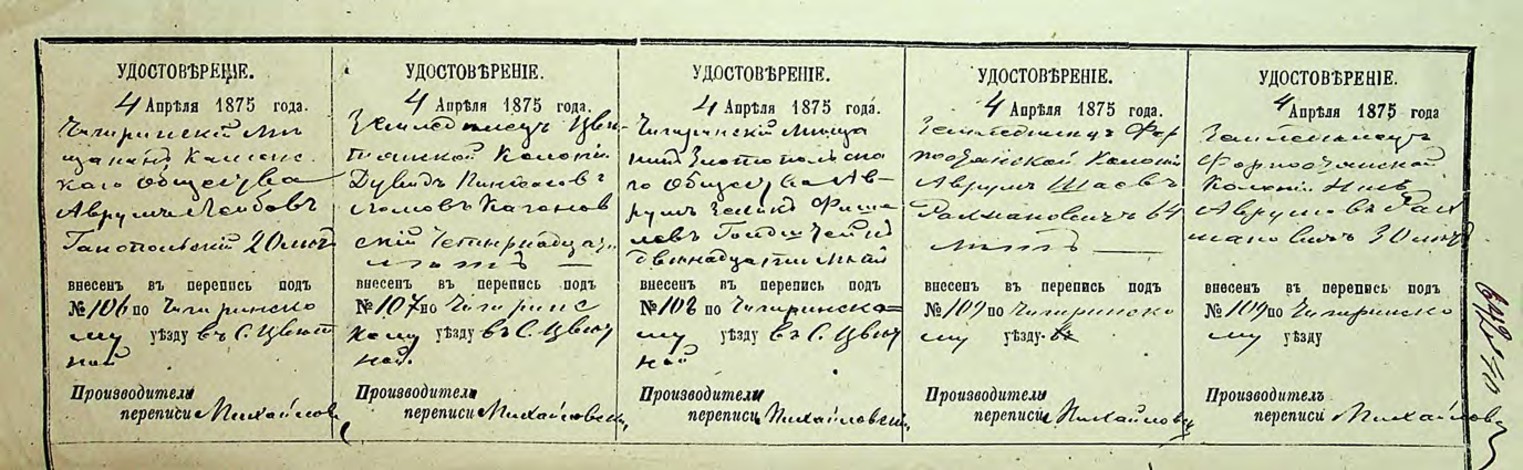 УДОСТОВѢРЕНІЕ.
4 Апрѣля 1875 года.
Чигиринскій мѣ
щанинъ Каменс
каго общества
Аврумъ Лейбовъ
20 лѣтъ
внесенъ въ перепись подъ
№ 106 по Чигиринско
му уѣзду въ С. Цвѣт
ной
Производитель
переписи Михайловс
УДОСТОВѢРЕНІЕ.
4 Апрѣля 1875 года.
Земледѣлецъ Цвѣт
колоніи
Дувидъ
Кагановъ
скій Четырнадцати
лѣтъ
внесенъ въ перепись подъ
№ 107 по Чигиринс
кому уѣзду въ С. Цвѣт
ной.
Производитель
переписи Михайловскій
УДОСТОВѢРЕНІЕ.
4 Апрѣля 1875 года.
Чигиринскій мѣща
нинъ Златопольска
го общества Ав
румъ Зеликъ Фише
левъ
двѣнадцати лѣтъ
внесенъ въ перепись подъ
№ 108 по Чигиринско=
му уѣзду въ С. Цвѣт
ной
Производитель
переписи Михайловскій
УДОСТОВѢРЕНІЕ.
4 Апрѣля 1875 года.
Земледѣлецъ
колоніи
Аврумъ Шаевъ
Рахмановичъ 64
лѣтъ
внесенъ въ перепись подъ
№ 109 по Чигиринско
му уѣзду
Производитель
переписи Михайловск
УДОСТОВѢРЕНІЕ.
4 Апрѣля 1875 года
Земледѣлецъ
колоніи
Аврумовъ Рах
мановичъ 30 лѣтъ
внесенъ въ перепись подъ
по Чигиринско
му уѣзду
Производитель
переписи Михайловс